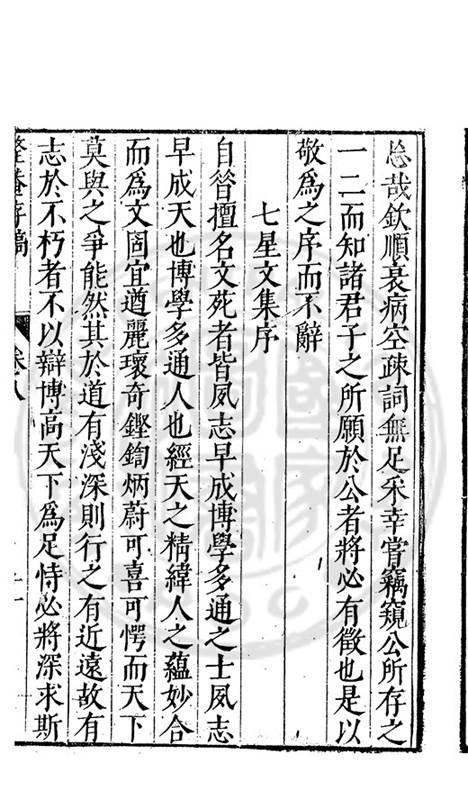 怱哉欽順衰病空疎詞無足采幸嘗竊窺公所存之
一二而知諸君子之所願於公者將必有徵也是以
敬爲之序而不辭
七星文集序
自昝擅名文死者皆夙志早成博學多通之士夙志
早成天也博學多通人也經天之精緯人之蘊妙合
而爲文固宜遒麗瓌奇鏗鍧炳蔚可喜可愕而天下
莫與之爭能然其於道有淺深則行之有近遠故有
志於不朽者不以辯博高天下爲足恃必將深求斯
整菴存稿
卷八